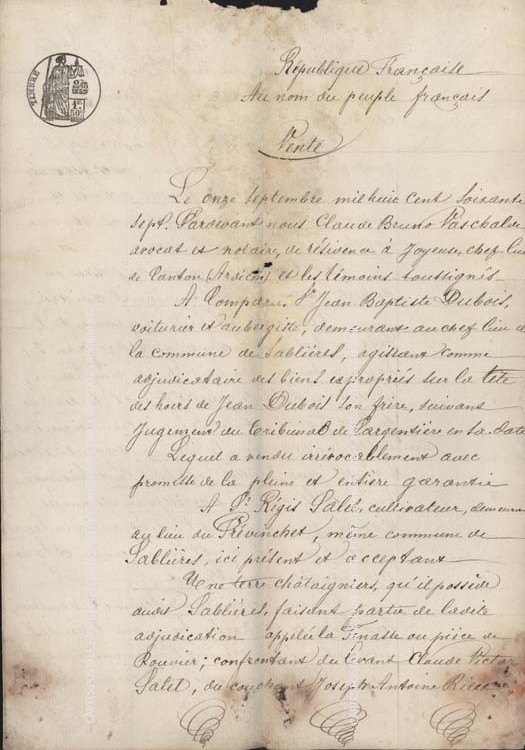 TIMBRE
2
1F
50c
République Française
Au nom du peuple français
Vente
Le onze septembre mil huit cent soixante
sept. Pardevant nous Claude Bruno Paschal
avocat et notaire, de résidence à Joyeuse, chef lieu
de Canton (Ardèche) et les témoins soussignés
A Comparu, Sr Jean Baptiste Dubois,
voiturier et aubergiste, demeurant au chef lieu de
la commune de Sablières, agissant comme
adjudicataire des biens expropriés sur la tête
des hoirs de Jean Dubois son frère, suivant
Jugement du Tribunal de Largentière en sa date
Lequel a vendu irrévocablement avec
promesse de la pleine et entière garantie
A Sr Régis Salel, cultivateur, demeurant
au lieu du Prévinchet, même commune de
Sablières, ici présent et acceptant
Une terre châtaigniers, qu'il possède
audit Sablières, faisant partie de ladite
adjudication appelée la ou pièce de
Rouvier; confrontant du Levant Claude Victor
Salel, du couchant Joseph Antoine